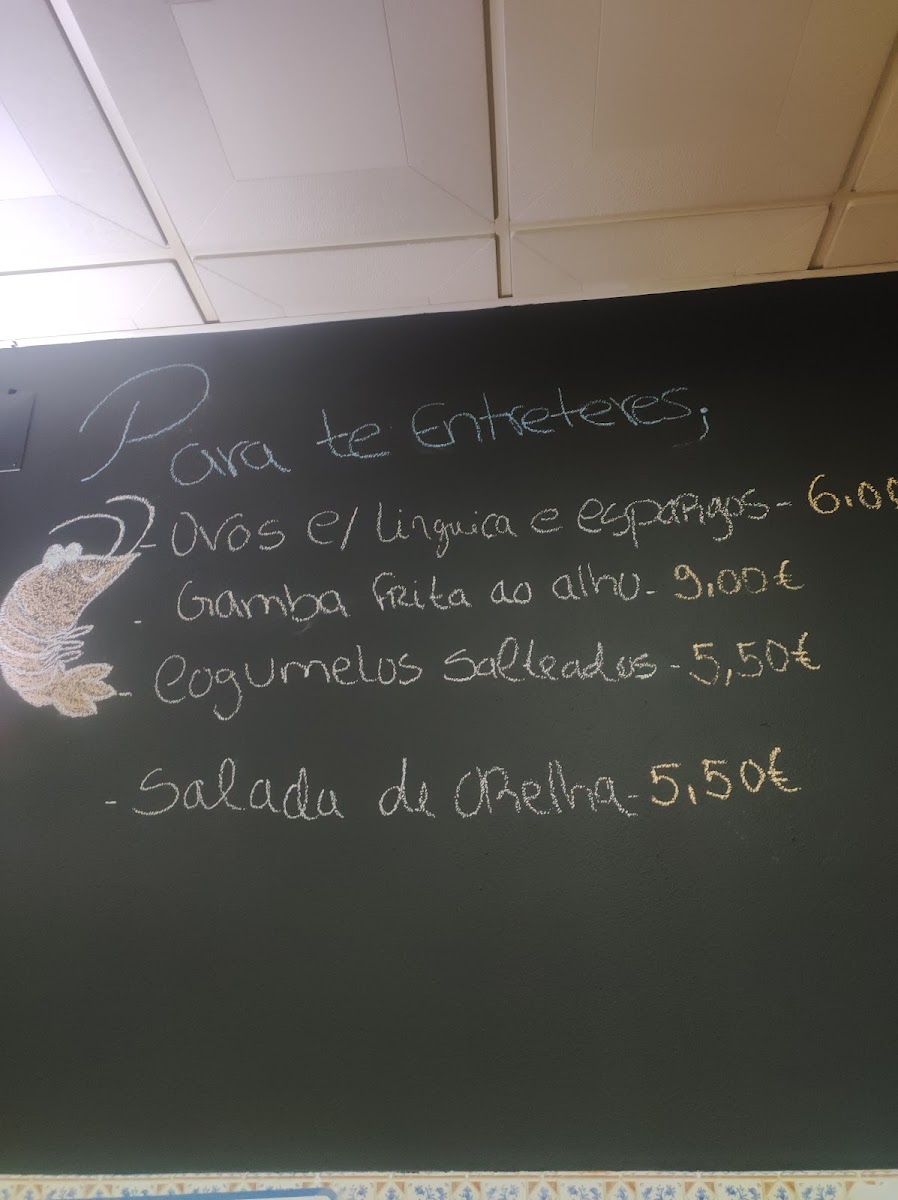 Para te Entreteres;
- Ovos c/ linguica e espargos - 6.00
- Gamba frita ao alho - 9,00€
- Cogumelos Salteados - 5,50€
- Salada de ORelha - 5,50€